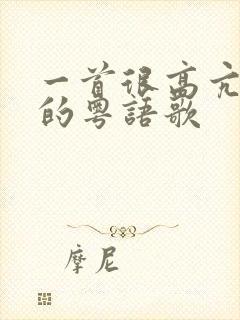 一首很高亢
的粵語歌
摩尼